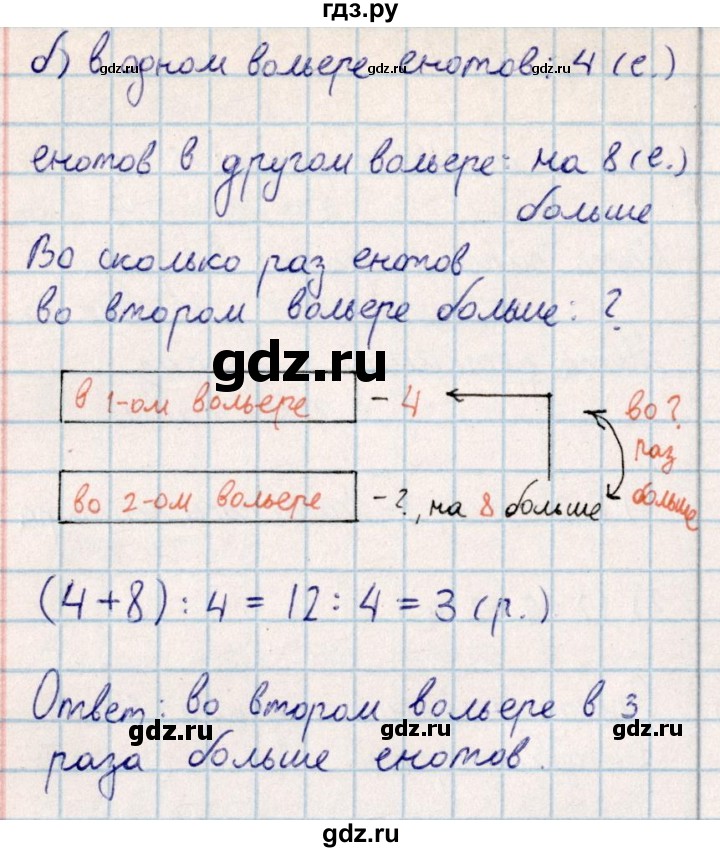 гдз.ру
б) в одном вольере енотов: 4 (е.)
gdz.ru gdz.ru gdz.ru
енотов в другом вольере: на 8 (е.)
больше
Во сколько раз енотов
во втором вольере больше: ?
gdz.ru
в 1-ом вольере - 4
во ?
раз
больше
во 2-ом вольере - ?, на 8 больше
(4+8) : 4 = 12 : 4 = 3 (р.)
Ответ: во втором вольере в 3
gdz.ru gdz.ru gdz.ru
раза больше енотов.
gdz.ru